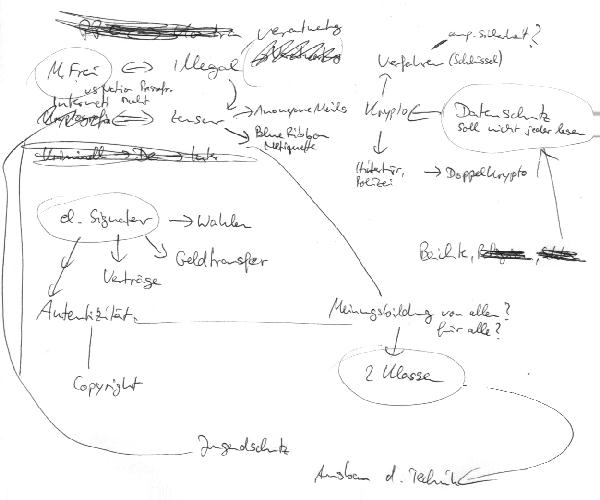 Verantwortg
amp. Sicherheit?
M. Frei <=> Illegal
Verfahren (Schlüssel)
us Nation
Internet
Zensur -> Anonyme Mails
Krypto
Datenschutz
soll nicht jeder lesen
Blue Ribbon
Netiquette
Kriminell -> De ->
Hintertür,
Polizei -> Doppelkrypto
d. Signatur -> Wahlen
Beichte,
Geldtransfer
Verträge
Autentizität
Meinungsbildung von allen?
für alle?
2 Klassen
Copyright
Jugendschutz
Ausbau d. Technik